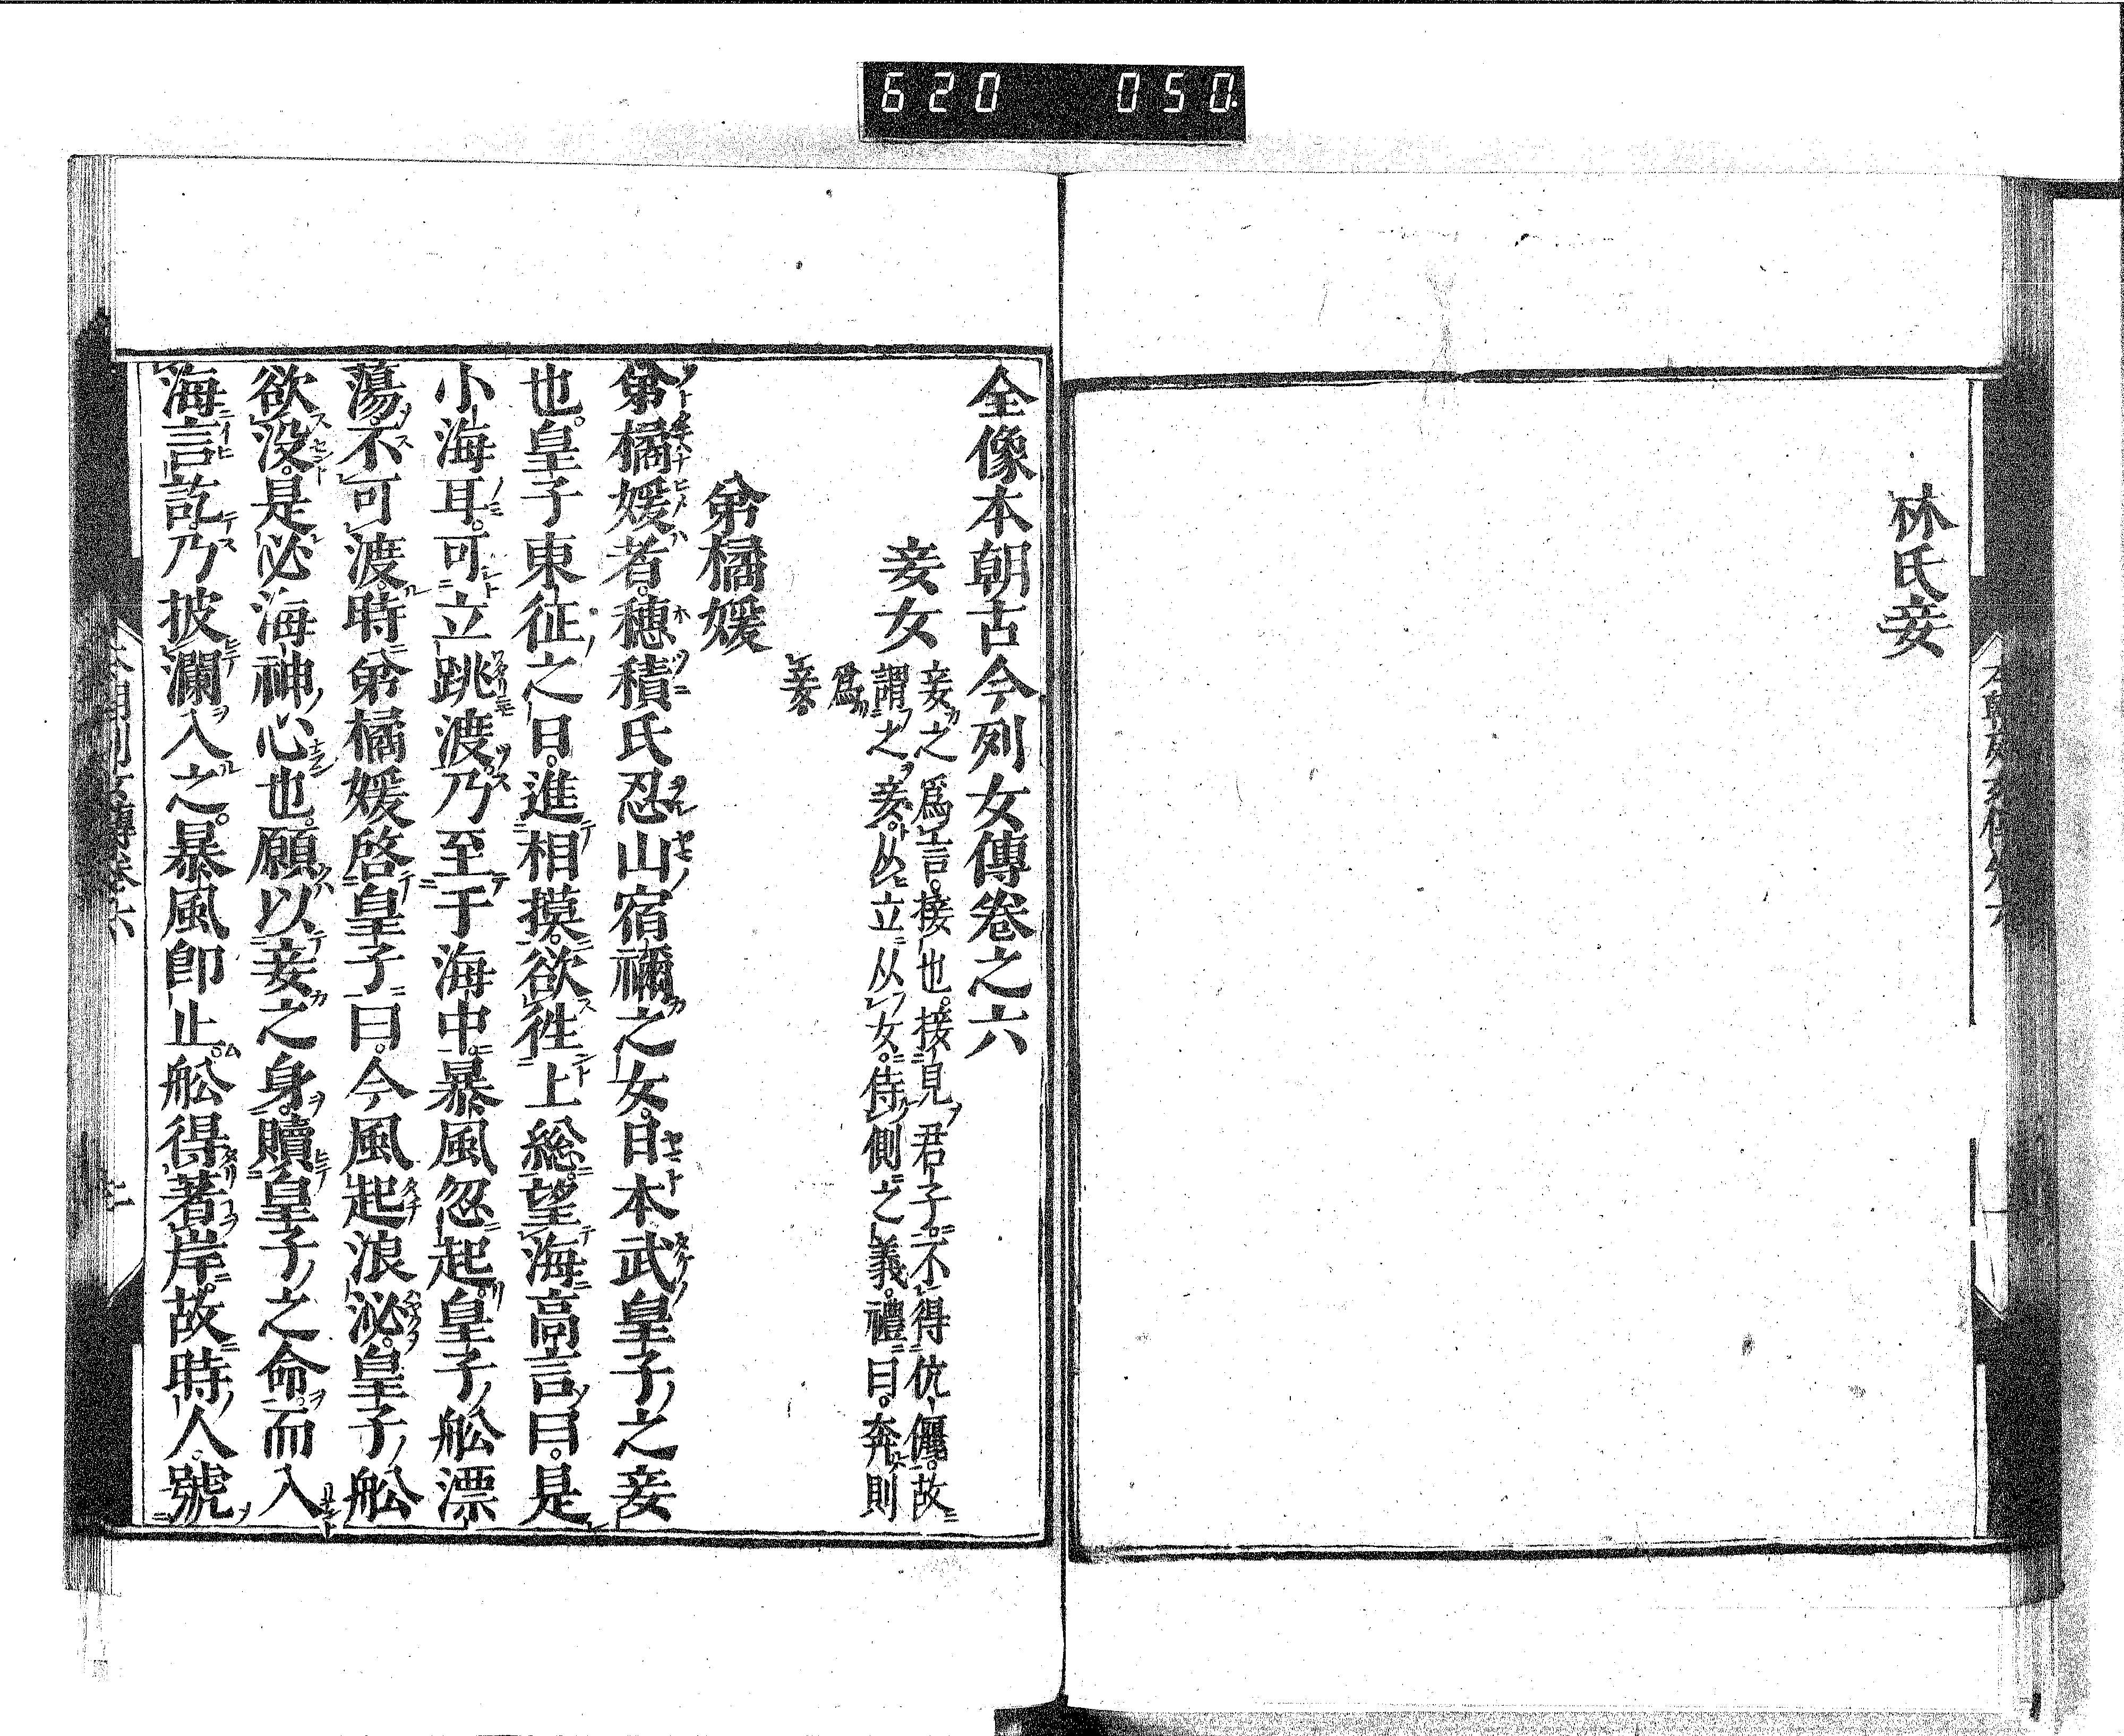 620 050
林氏妾
全像本朝古今列女傳卷之六
妾女
妾之爲言。接也。接見君子。不得伉儷。故
謂之妾。从立从女。侍側之義。禮曰。奔則
爲
妾。
弟橘媛
弟橘媛者。穗積氏忍山宿禰之女。日本武皇子之妾
也。皇子東征之日。進相摸。欲徃上総。望海高言曰。是
小海耳。可立跳渡。乃至于海中。暴風忽起。皇子舩漂
蕩。不可渡。時弟橘媛啓皇子曰。今風起浪泌。皇子舩
欲没。是必海神心也。願以妾之身。贖皇子之命。而入
海言訖。乃披瀾入之。暴風即止。舩得著岸。故時人。號